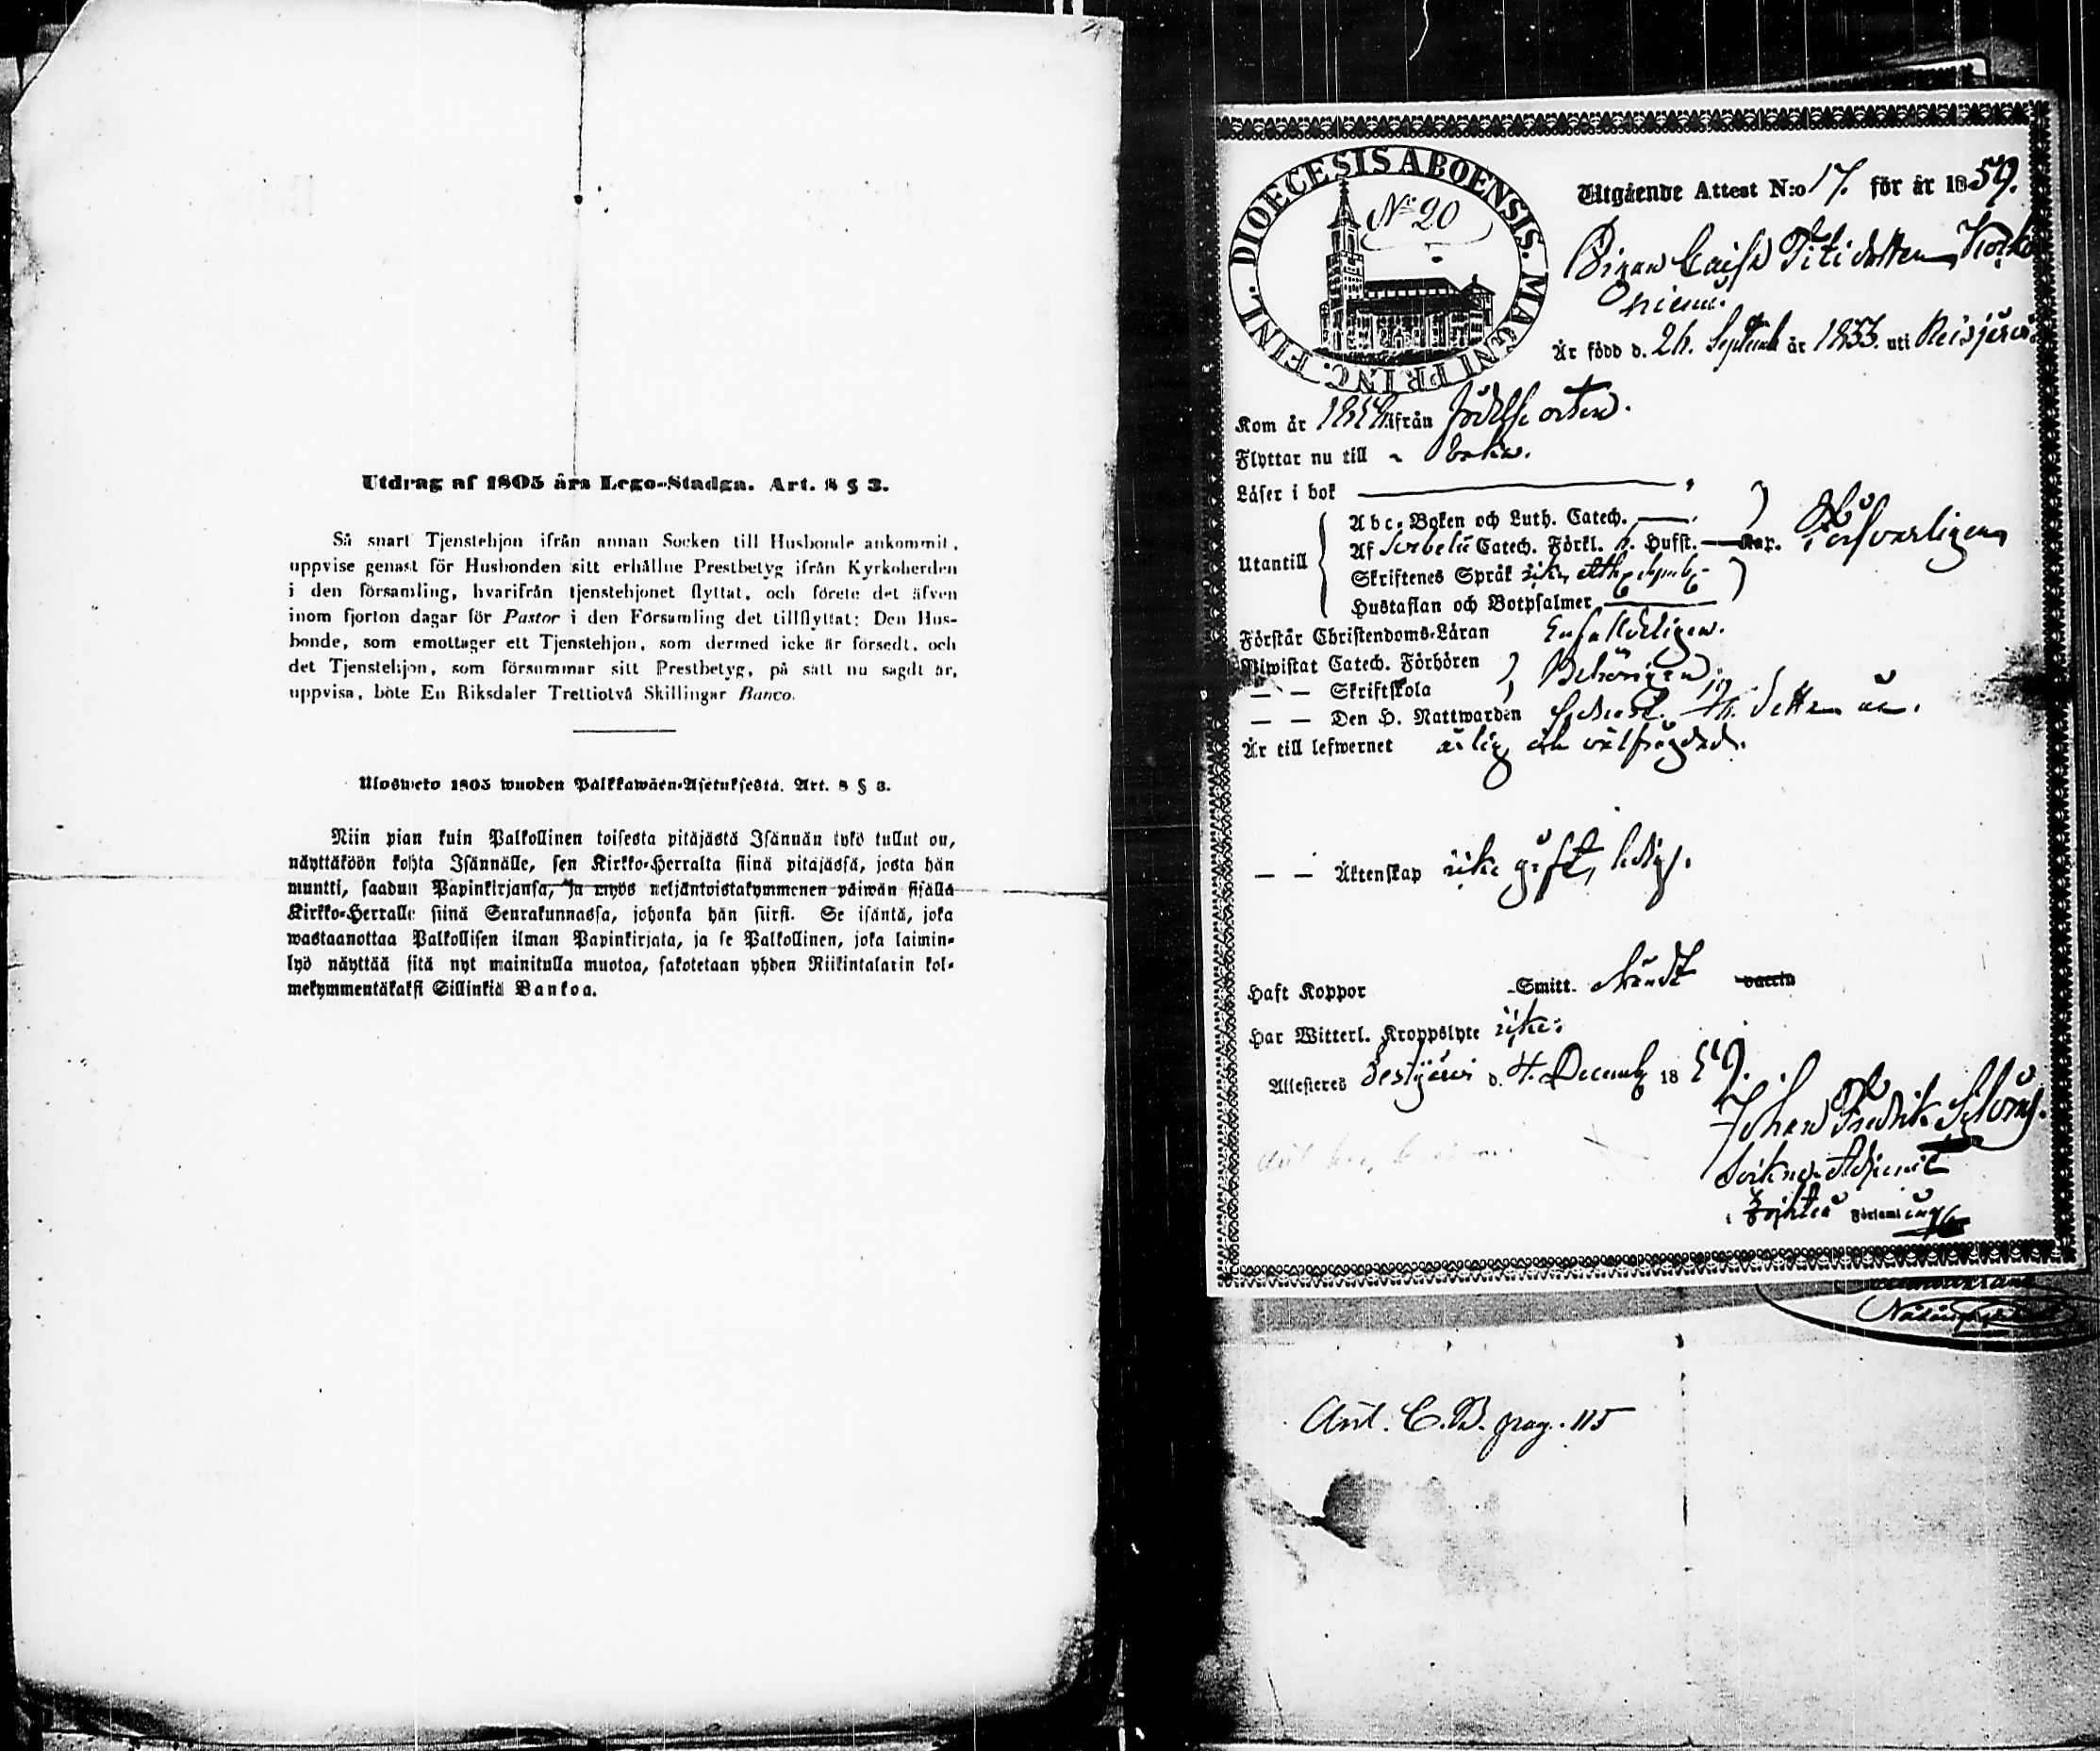 Utdrag af 1805 års Lego-Stadga. Art. 8 § 3.
Så snart Tjenstehjon ifrån annan Socken till Husbonde ankommit,
uppvise genast för Husbonden sitt erhållne Prestbetyg ifrån Kyrkoherden
i den församling, hvarifrån tjenstehjonet flyttat, och förete det äfven
inom fjorton dagar för Pastor i den Församling det tillflyttat: Den Hus-
bonde, som emottager ett Tjenstehjon, som dermed icke är försedt, och
det Tjenstehjon, som försummar sitt Prestbetyg, på sätt nu sagdt är,
uppvisa, böte En Riksdaler Trettiotvå Skillingar Banco.
Ulosweto 1805 wuoden Palkkawäen-Asetuksesta. Art. 8 § 3.
Niin pian kuin Palkollinen toisesta pitäjästä Isännän tykö tullut on,
näyttäköön kohta Isännälle, sen Kirkko-Herralta siinä pitäjässä, josta hän
muutti, saadun Papinkirjansa, ja myös neljäntoistakymmenen päiwän sisällä
Kirkko-Herralle siinä Seurakunnassa, johonka hän siirsi. Se isäntä, joka
wastaanottaa Palkollisen ilman Papinkirjata, ja se Palkollinen, joka laimin-
lyö näyttää sitä nyt mainitulla muotoa, sakotetaan yhden Riikintalarin kol-
mekymmentäkaksi Sillinkiä Bankoa.
DIOECESIS ABOENSIS. MAGNI PRINC. FINL.
N:o 20
Utgående Attest N:o 17. för år 1859.
Pigan Caisa
Är född d. 26. Septemb år 1833. uti Reisjärvi
Kom år ifrån födelse orten.
Flyttar nu till
Läser i bok
Abc-Boken och Luth. Catech.
Utantill
Af Svebelii Catech. Förkl. Hufst. Kap. Försvarligen
Skriftenes Språk icke
Hustaflan och Botpsalmer
Förstår Christendoms-Läran Enfaldeligen.
Biwistat Catech. Förhören
— — Skriftskola Behörigen
— — Den H. Nattwarden
Är till lefwernet ärlig och välfrägdad.
— — Äktenskap icke gift, ledig.
Haft Koppor Smitt. vaccin
Har Witterl. Kroppslyte icke.
Attesteres Lestijärvi d. 4. Decemb 1859.
Johan Fredrik
Sockne-Adjunct
i Församling
Ant. C.B. pag. 115